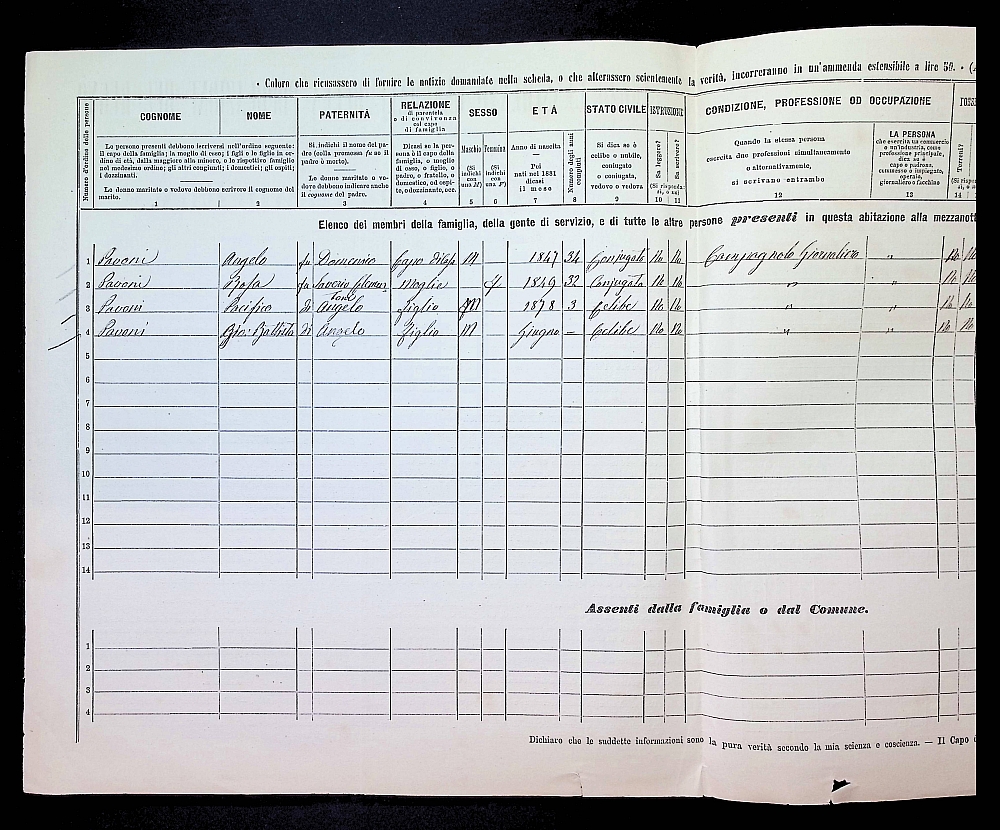 • Coloro che ricusassero di fornire le notizie domandate nella scheda, o che alterassero scientemente la verità, incorreranno in un'ammenda estensibile a lire 50. • (A
Numero d'ordine delle persone
COGNOME NOME PATERNITÀ RELAZIONE di parentela o di convivenza col capo di famiglia SESSO ETÀ STATO CIVILE ISTRUZIONE CONDIZIONE, PROFESSIONE OD OCCUPAZIONE POSSI
Le persone presenti debbono iscriversi nell'ordine seguente:
il capo della famiglia; la moglie di esso; i figli o le figlie in ordine di età, dalla maggiore alla minore, e le rispettive famiglie nel medesimo ordine; gli altri congiunti; i domestici; gli ospiti; i dozzinanti.
Le donne maritate o vedove debbono scrivere il cognome del marito.
Si indichi il nome del padre (colla premessa fu se il padre è morto).
Le donne maritate o vedove debbono indicare anche il cognome del padre.
Dicasi se la persona è il capo della famiglia, o moglie di esso, o figlio, o padre, o fratello, o domestico, od ospite, o dozzinante, ecc.
Maschio (Si indichi con una M)
Femmina (Si indichi con una F)
Anno di nascita
Pei nati nel 1881 dicasi il mese
Numero degli anni compiuti
Si dica se è celibe o nubile, coniugato o coniugata, vedovo o vedova
Sa leggere? Sa scrivere?
(Si risponda: sì, o no)
Quando la stessa persona esercita due professioni simultaneamente o alternativamente, si scrivano entrambe
LA PERSONA che esercita un commercio o un'industria, come professione principale, dica se è capo o padrone, commesso o impiegato, operaio, giornaliero o facchino
Terreni?
(Si rispon sì, o
1 2 3 4 5 6 7 8 9 10 11 12 13 14
Elenco dei membri della famiglia, della gente di servizio, e di tutte le altre persone presenti in questa abitazione alla mezzanott
1 Pavoni Angelo fu Domenico Capo M 1847 34 Conjugato No No Campagnolo Giornaliero „ No No
2 Pavoni Rosa fu Saverio Moglie f 1849 32 Conjugata No No „ „ No No
3 Pavoni Pacifico di Angelo figlio M 1878 3 Celibe No No „ „ No No
4 Pavoni Gio: Battista di Angelo figlio M Giugno — Celibe No No „ „ No No
5
6
7
8
9
10
11
12
13
14
Assenti dalla famiglia o dal Comune.
1
2
3
4
Dichiaro che le suddette informazioni sono la pura verità secondo la mia scienza e coscienza. — Il Capo d